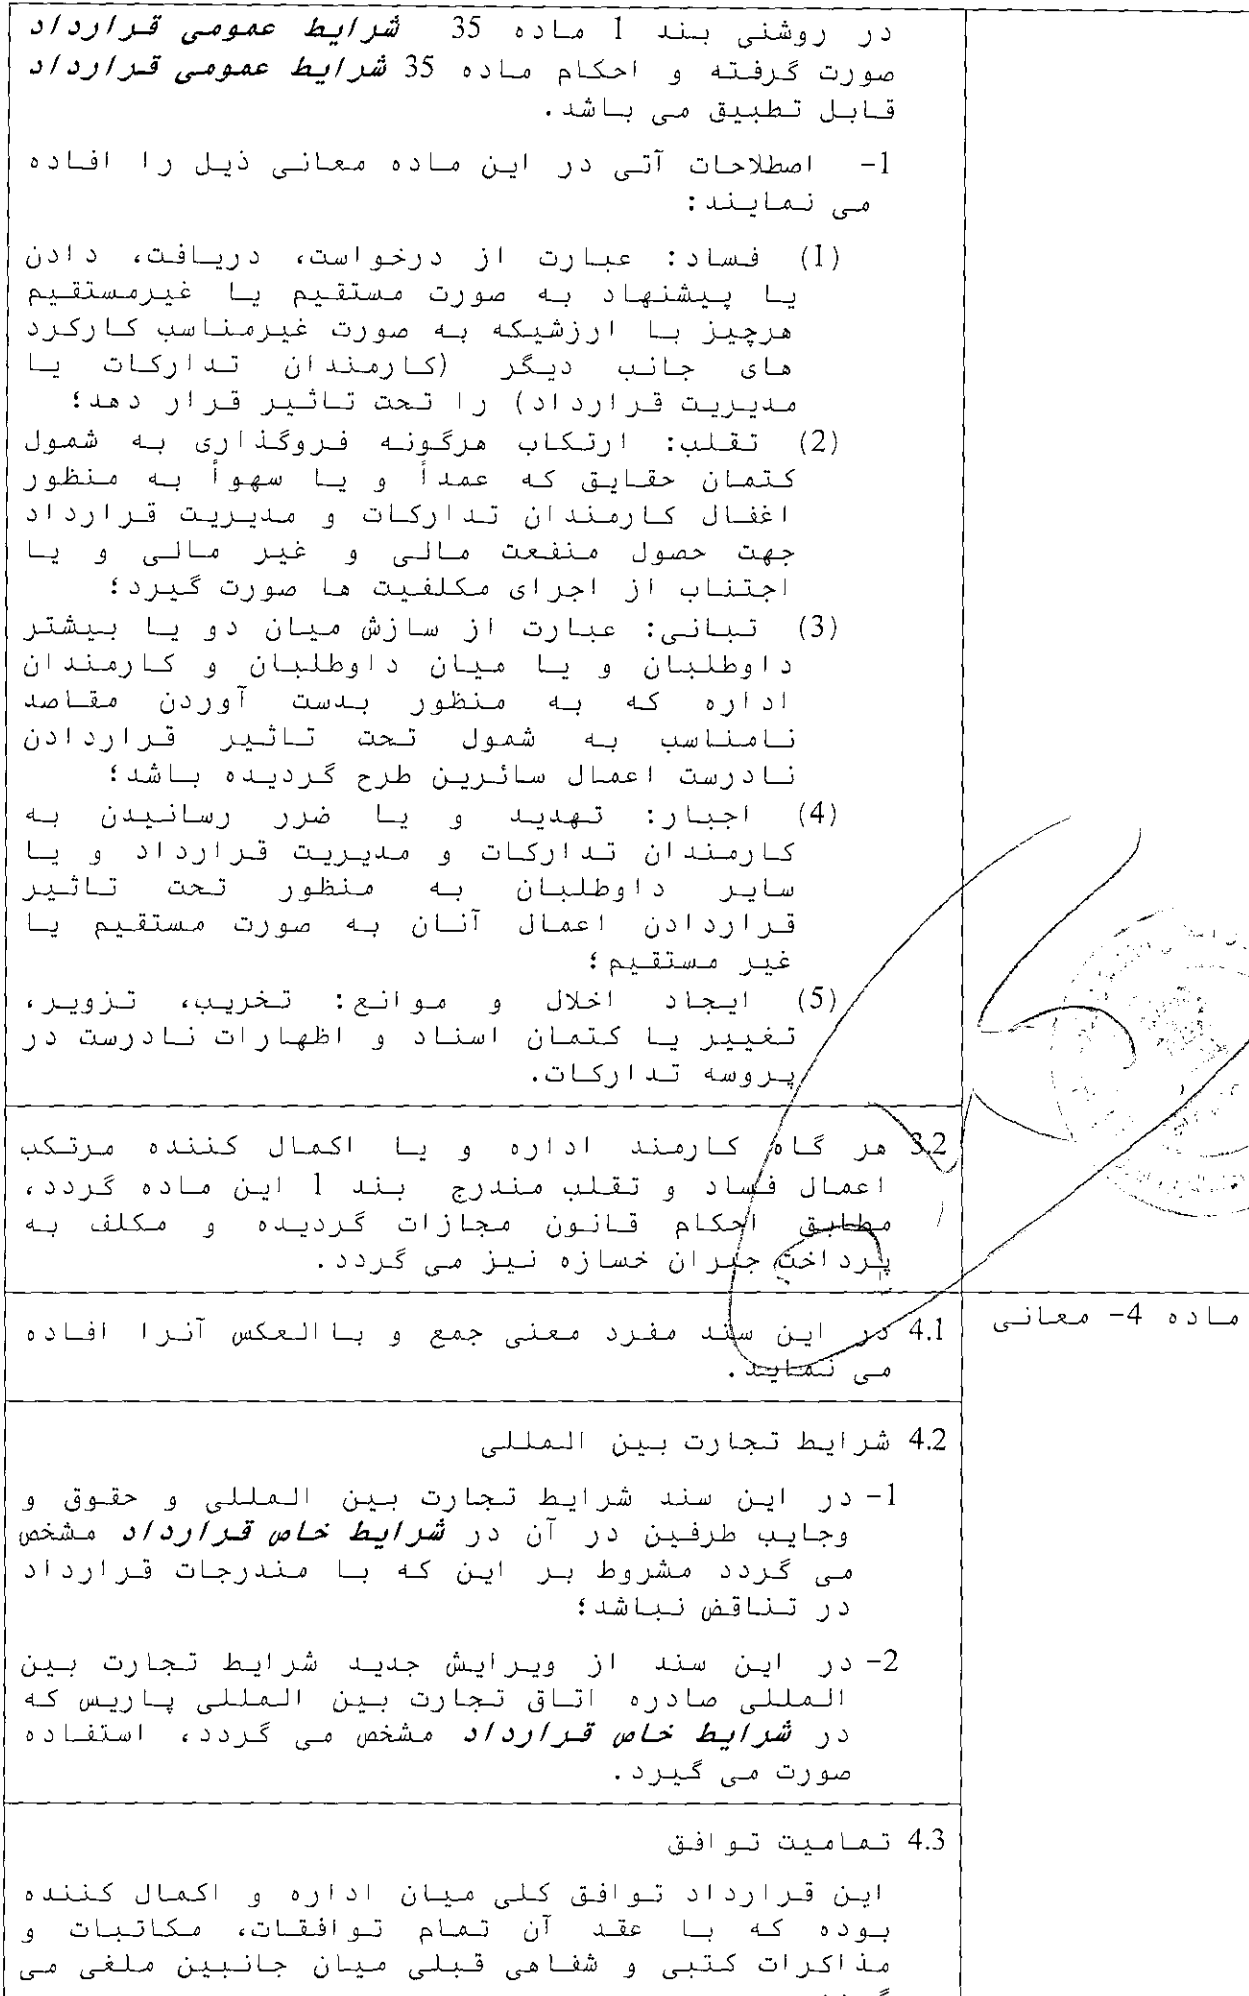 در روشنی بند 1 ماده 35 شرایط عمومی قرارداد
صورت گرفته و احکام ماده 35 شرایط عمومی قرارداد
قابل تطبیق می باشد.
1- اصطلاحات آتی در این ماده معانی ذیل را افاده
می نمایند:
(1) فساد: عبارت از درخواست، دریافت، دادن
یا پیشنهاد به صورت مستقیم یا غیرمستقیم
هرچیز با ارزشیکه به صورت غیرمناسب کارکرد
های جانب دیگر (کارمندان تدارکات یا
مدیریت قرارداد) را تحت تاثیر قرار دهد؛
(2) تقلب: ارتکاب هرگونه فروگذاری به شمول
کتمان حقایق که عمداً و یا سهواً به منظور
اغفال کارمندان تدارکات و مدیریت قرارداد
جهت حصول منفعت مالی و غیر مالی و یا
اجتناب از اجرای مکلفیت ها صورت گیرد؛
(3) تبانی: عبارت از سازش میان دو یا بیشتر
داوطلبان و یا میان داوطلبان و کارمندان
اداره که به منظور بدست آوردن مقاصد
نامناسب به شمول تحت تاثیر قراردادن
نادرست اعمال سائرین طرح گردیده باشد؛
(4) اجبار: تهدید و یا ضرر رسانیدن به
کارمندان تدارکات و مدیریت قرارداد و یا
سایر داوطلبان به منظور تحت تاثیر
قراردادن اعمال آنان به صورت مستقیم یا
غیر مستقیم؛
(5) ایجاد اخلال و موانع: تخریب، تزویر،
تغییر یا کتمان اسناد و اظهارات نادرست در
پروسه تدارکات.
3.2 هر گاه کارمند اداره و یا اکمال کننده مرتکب
اعمال فساد و تقلب مندرج بند 1 این ماده گردد،
مطابق احکام قانون مجازات گردیده و مکلف به
پرداخت جبران خسازه نیز می گردد.
ماده 4- معانی
4.1 در این سند مفرد معنی جمع و باالعکس آنرا افاده
می نماید.
4.2 شرایط تجارت بین المللی
1- در این سند شرایط تجارت بین المللی و حقوق و
وجایب طرفین در آن در شرایط خاص قرارداد مشخص
می گردد مشروط بر این که با مندرجات قرارداد
در تناقض نباشد؛
2- در این سند از ویرایش جدید شرایط تجارت بین
المللی صادره اتاق تجارت بین المللی پاریس که
در شرایط خاص قرارداد مشخص می گردد، استفاده
صورت می گیرد.
4.3 تمامیت توافق
این قرارداد توافق کلی میان اداره و اکمال کننده
بوده که با عقد آن تمام توافقات، مکاتبات و
مذاکرات کتبی و شفاهی قبلی میان جانبین ملغی می